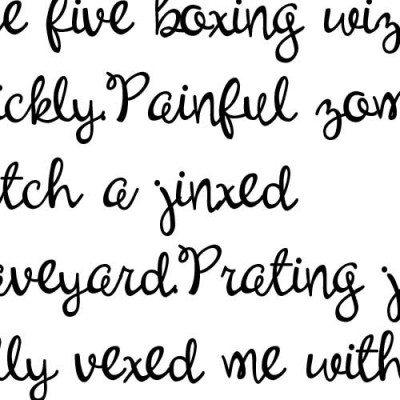 e five boxing wiz
ickly.Painful zom
tch a jinxed
veyard.Prating j
lly vexed me with